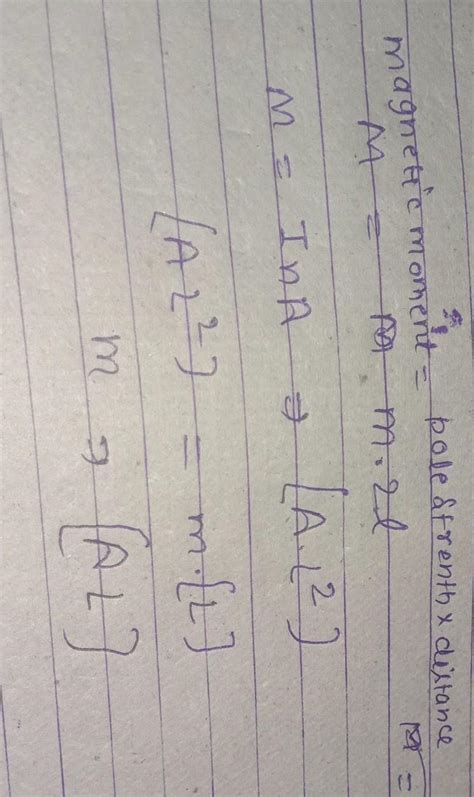 magnetic moment = pole strenth x distance
M = m.2l
M = InA ⇒ [A.L²]
[AL²] = m.[L]
m → [AL]